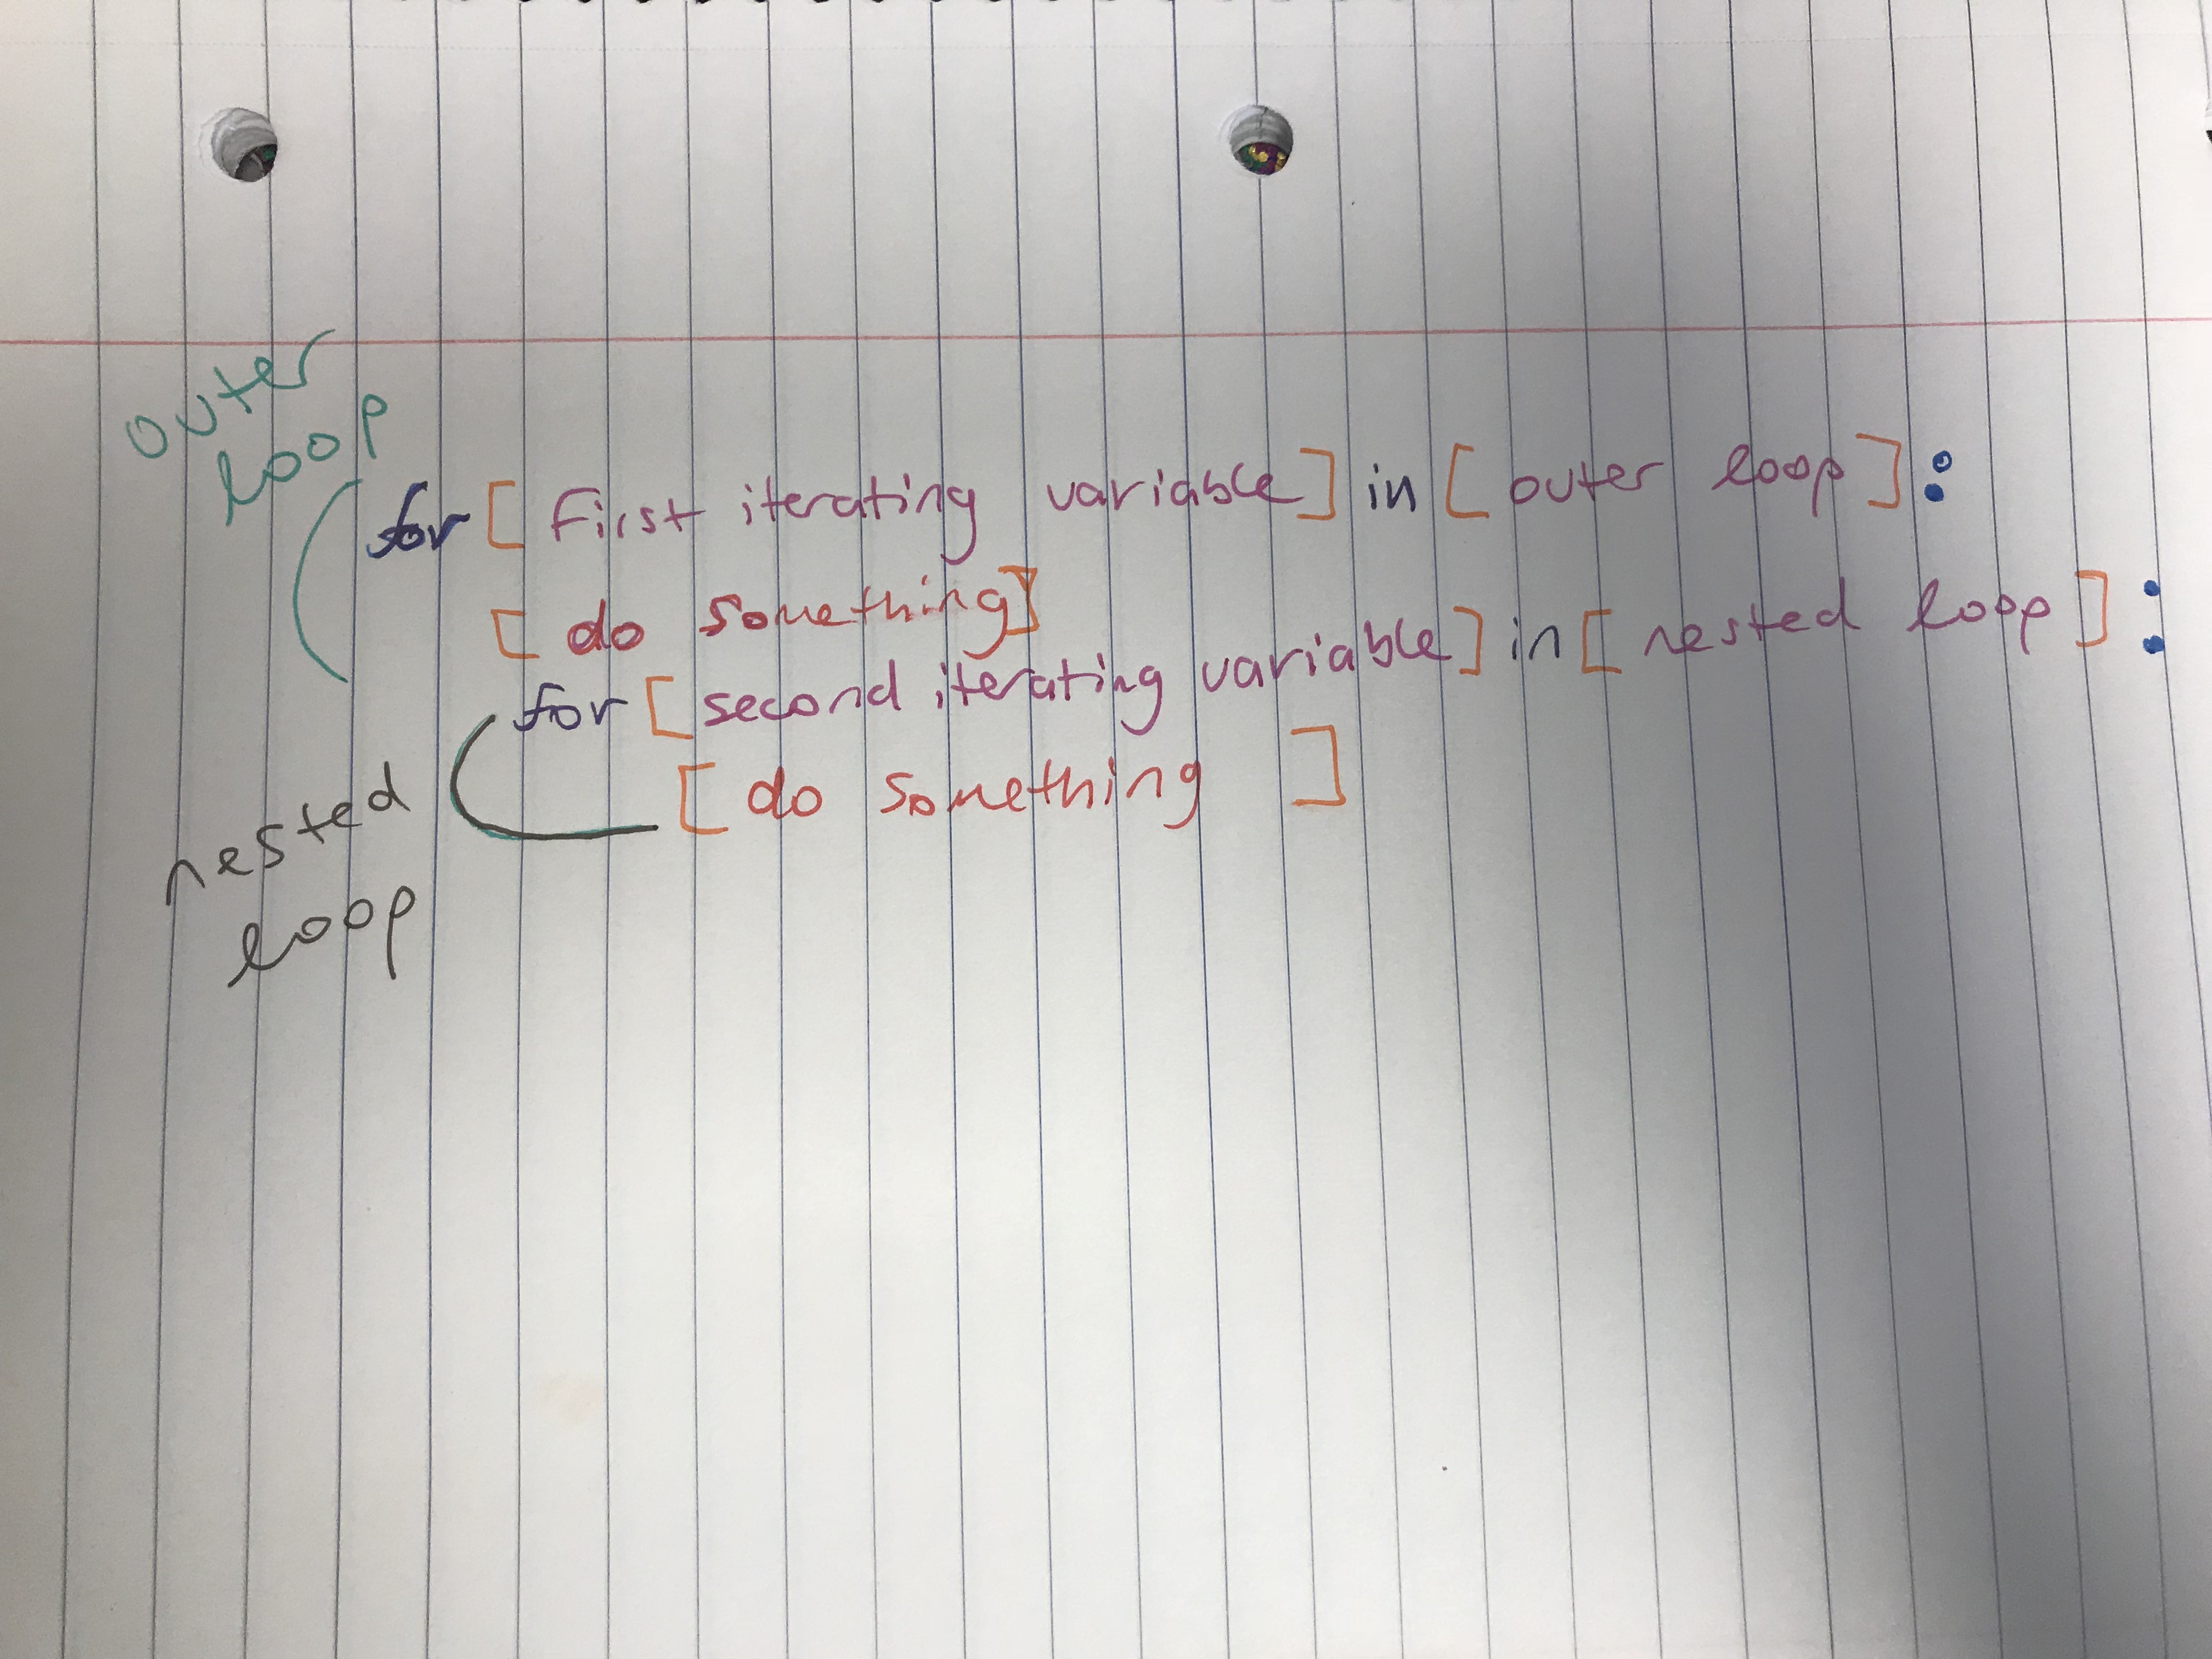 outer
loop
for [First iterating variable] in [outer loop]:
[do something]
for [second iterating variable] in [nested loop]:
nested
loop
[do something]